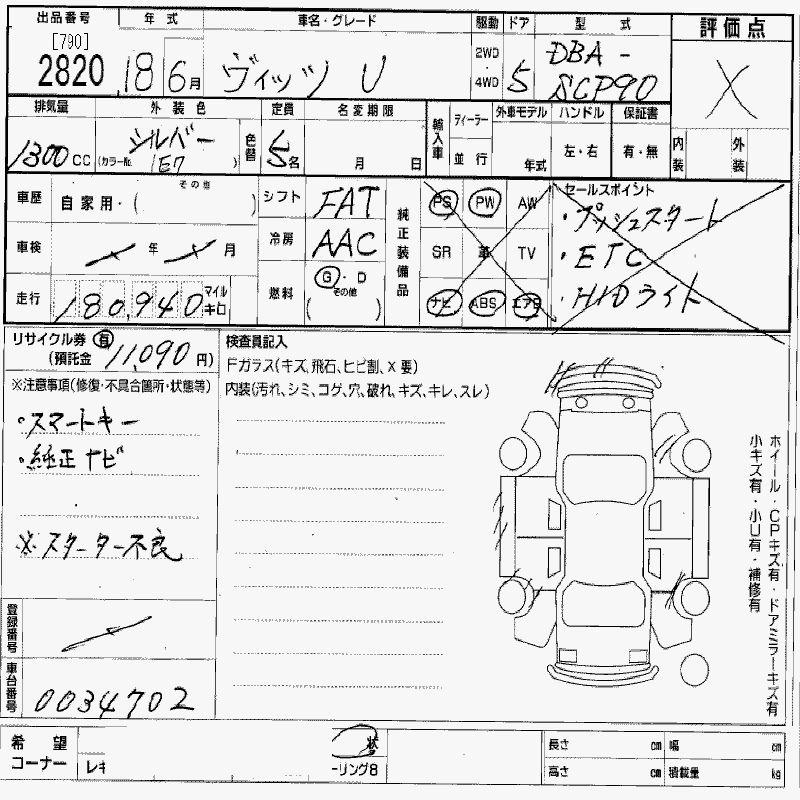 出品番号 年式 車名・グレード 駆動 ドア 型式 評価点
[790]
2820 18 6月 ヴィッツ U 2WD・4WD 5 DBA-SCP90 X
排気量 外装色 定員 名変期限 輸入車 ディーラー 外車モデル ハンドル 保証書 内装 外装
1300CC シルバー (カラーNo. 1E7) 色替 5名 月 日 並行 年式 左・右 有・無
車歴 自家用・(その他) シフト FAT 純正装備品 PS PW AW セールスポイント
・プッシュスタート
車検 年 月 冷房 AAC SR 革 TV ・ETC
走行 180,940 マイル キロ 燃料 G・D (その他) ナビ ABS エアB ・HIDライト
リサイクル券 有 (預託金 11,090円) 検査員記入
Fガラス(キズ、飛石、ヒビ割、X要)
※注意事項(修復・不具合箇所・状態等) 内装(汚れ、シミ、コゲ、穴、破れ、キズ、キレ、スレ)
・スマートキー
・純正ナビ
※スターター不良
ホイール・CPキズ有・ドアミラーキズ有
小キズ有・小U有・補修有
登録番号
車台番号 0034702
希望コーナー レキ ーリング8 状 長さ cm 幅 cm
高さ cm 積載量 kg